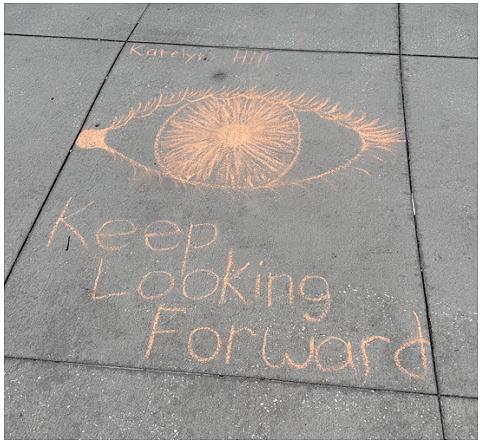 Katelyn Hill
Keep
Looking
Forward